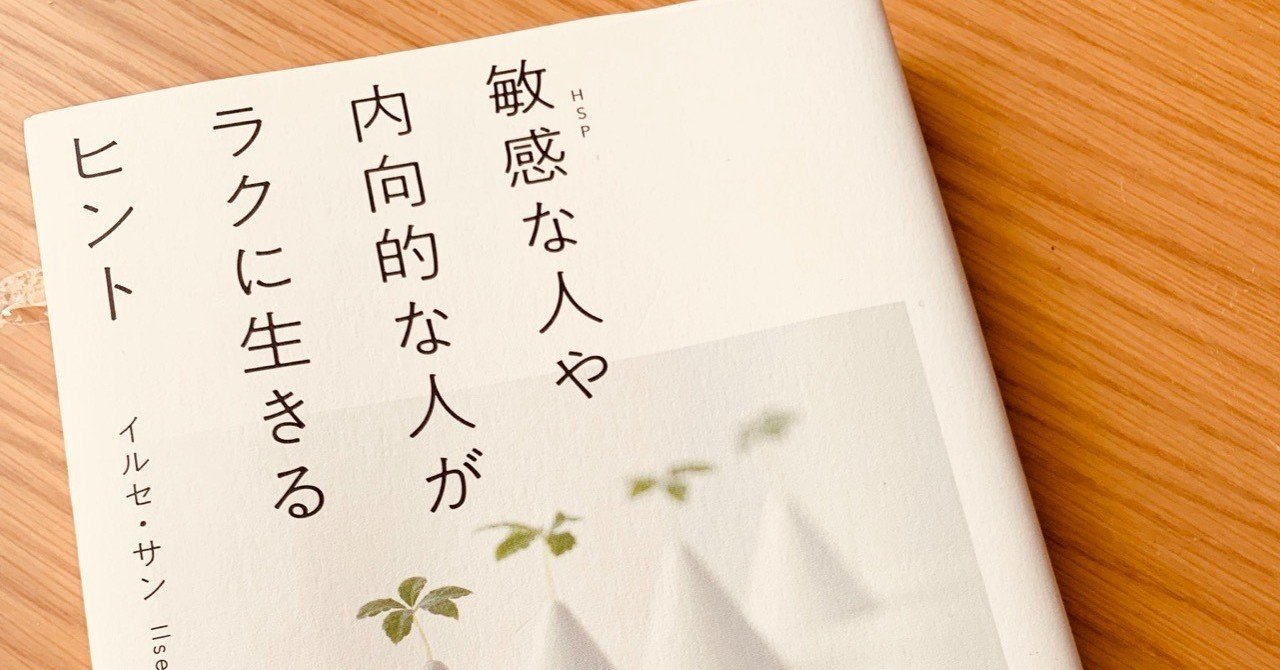 敏感な人や
HSP
内向的な人が
ラクに生きる
ヒント
イルセ・サン Ilse